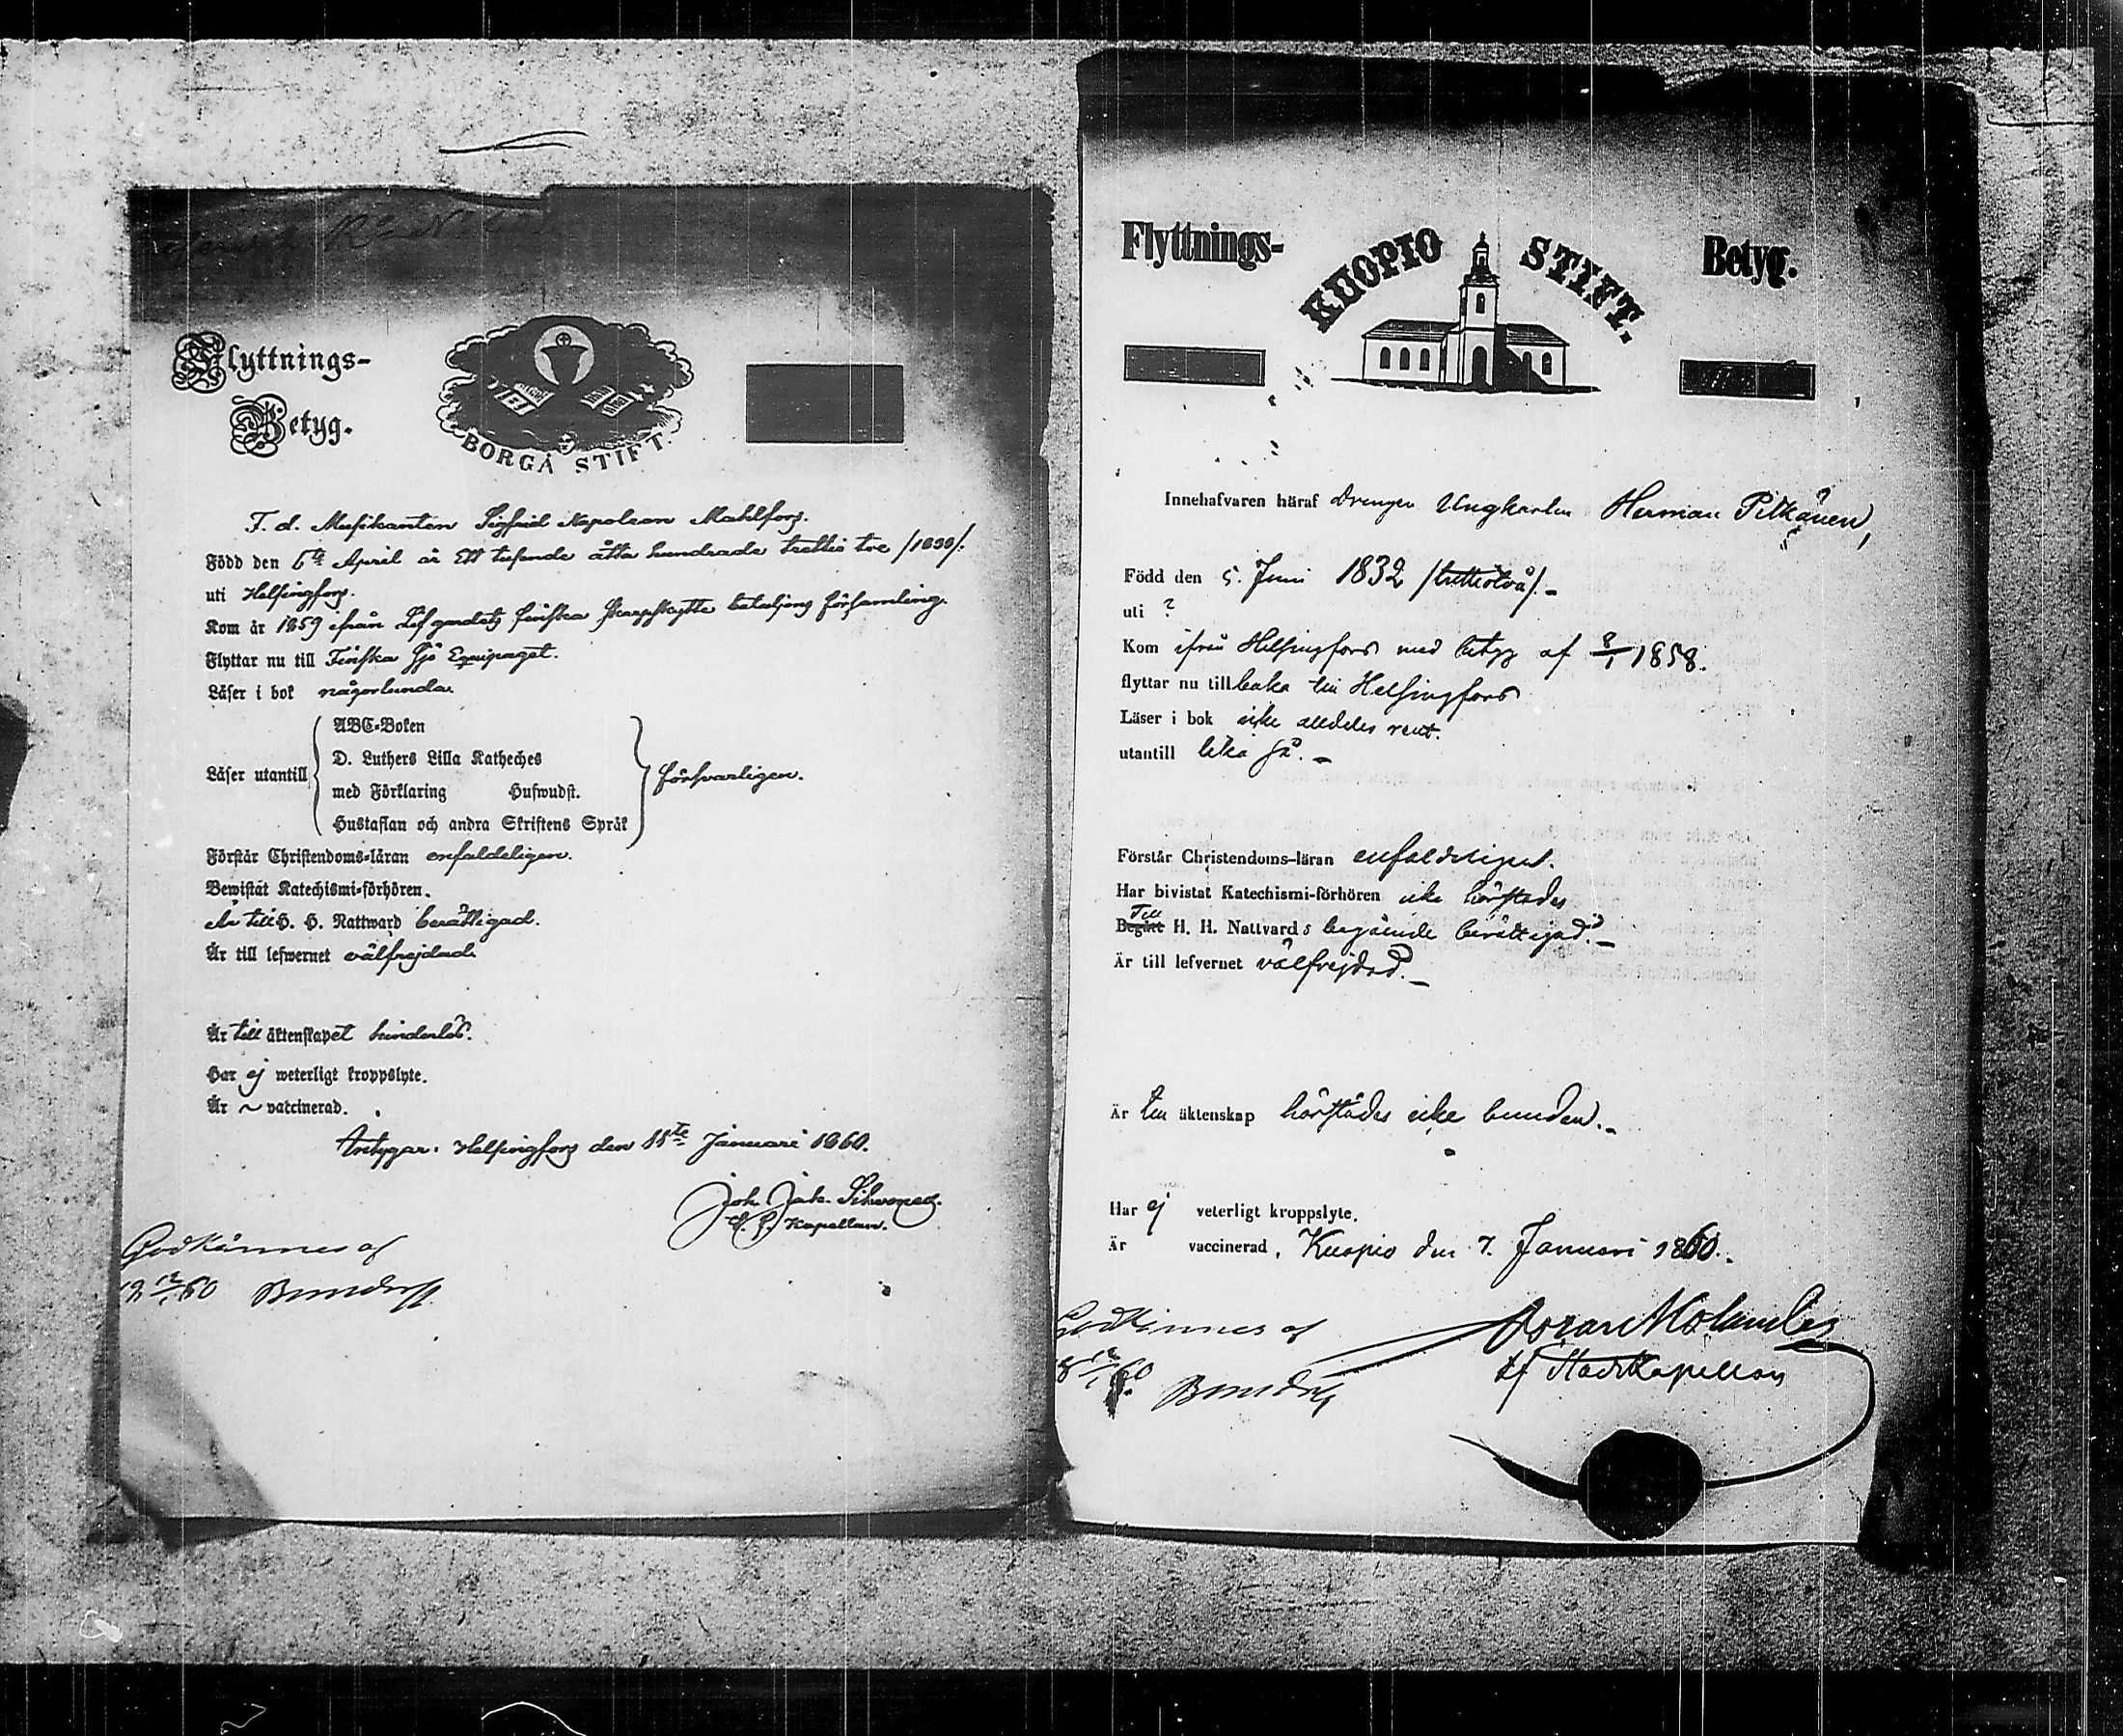 Flyttnings-
Betyg.
BORGÅ STIFT.
F. d. Musikanten Sigfrid Napoleon Mahlfors.
Född den 6te April år Ett tusende åtta hundrade trettio tre /1833/.
uti Helsingfors.
Kom år 1859 ifrån Lif gardets finska skarpskytte bataljons församling.
Flyttar nu till Finska Sjö Equipaget.
Läser i bok någorlunda.
Läser utantill
ABC-Boken
D. Luthers Lilla Katheches
med Förklaring Hufwudst.
Hustaflan och andra Skriftens Språk
försvarligen.
Förstår Christendoms-läran enfaldeligen.
Bewistat Katechismi-förhören.
Är till H. H. Nattward berättigad.
Är till lefwernet välfrejdad.
Är till äktenskapet hinderlös.
Har ej weterligt kroppslyte.
Är ~ vaccinerad.
Helsingfors den 11te Januari 1860.
Joh. Jak.
Kapellan.
Godkännes af
12/1 60
Flyttnings- KUOPIO STIFT. Betyg.
Innehafvaren häraf Drengen Ungkarlen Herman Pitkänen,
Född den 5. Juni 1832 /trettiotvå/. -
uti ?
Kom ifrån Helsingfors med betyg af 8/1 1858.
flyttar nu till baka till Helsingfors
Läser i bok icke alldeles rent.
utantill lika så. -
Förstår Christendoms-läran enfaldeligen.
Har bivistat Katechismi-förhören icke härstädes
Till
Begått H. H. Nattvards begående berättigad. -
Är till lefvernet välfrejdad. -
Är till äktenskap härstädes icke bunden. -
Har ej veterligt kroppslyte.
Är vaccinerad. Kuopio den 7. Januari 1860.
tf Stadskapellan
Godkännes af
12/1 60